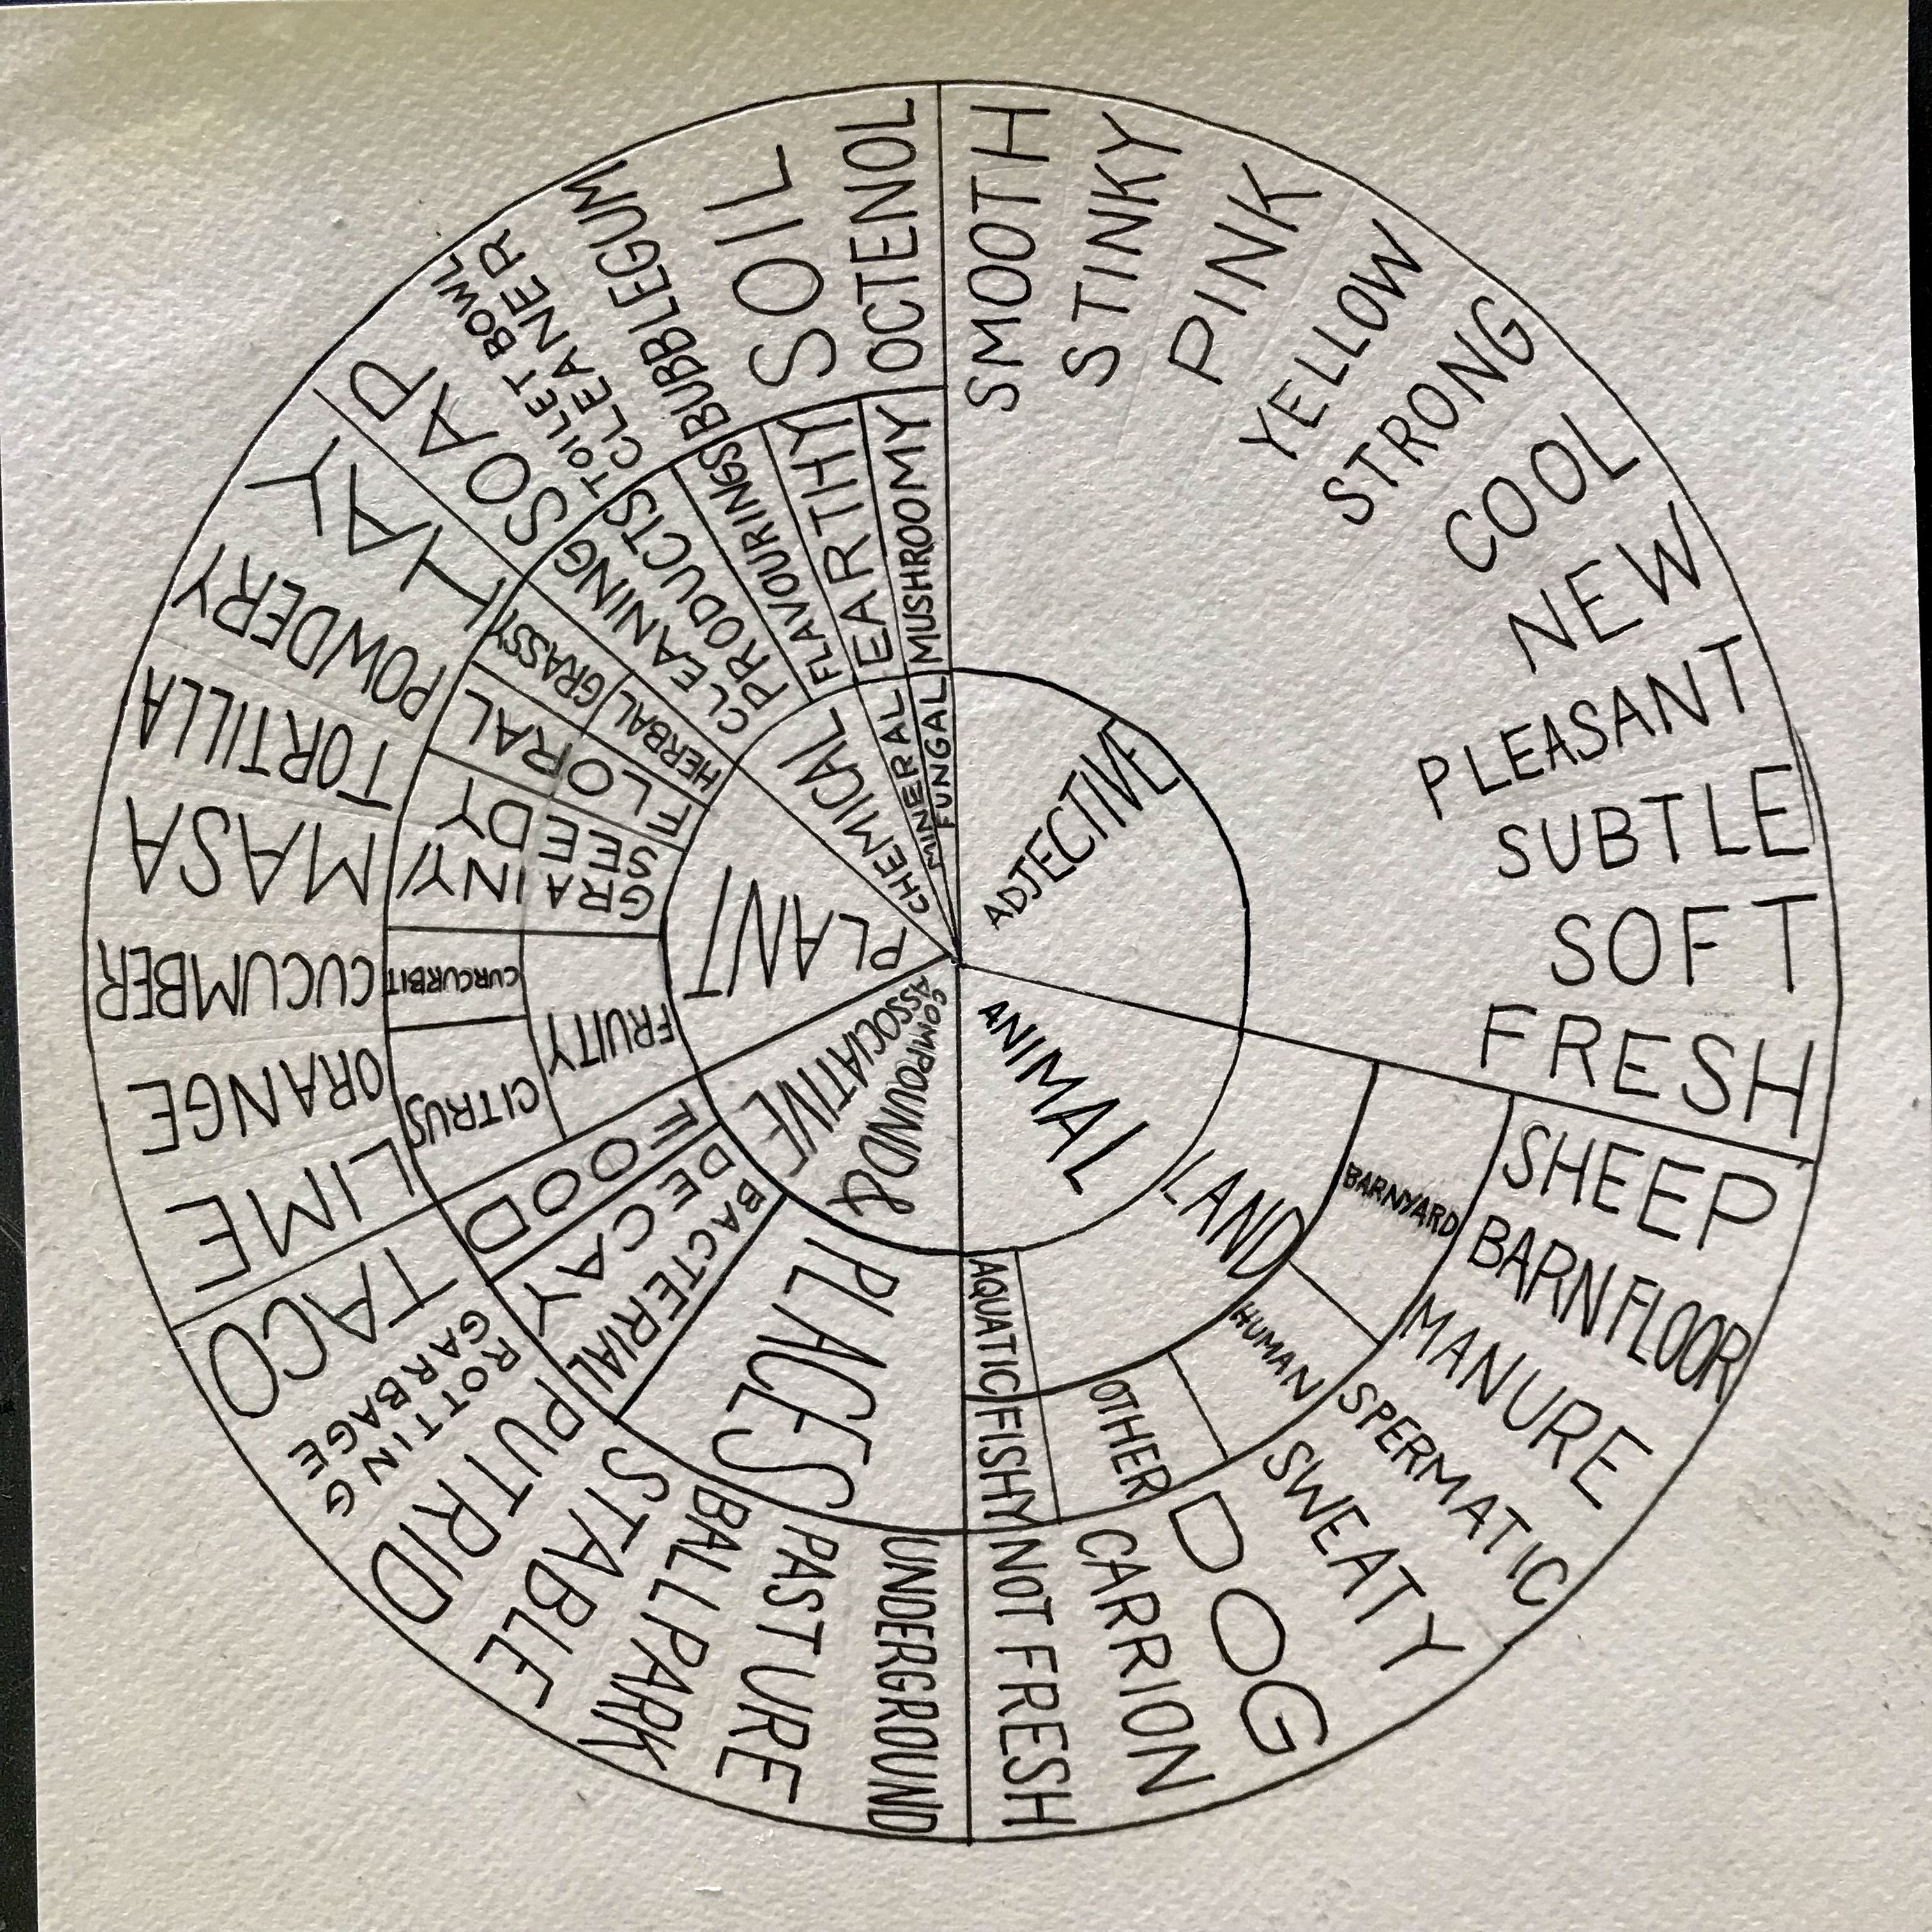 ADJECTIVE
SMOOTH
STINKY
PINK
YELLOW
STRONG
COOL
NEW
PLEASANT
SUBTLE
SOFT
FRESH
ANIMAL
LAND
BARNYARD
SHEEP
BARN FLOOR
MANURE
HUMAN
SPERMATIC
SWEATY
OTHER
DOG
CARRION
AQUATIC
FISHY
NOT FRESH
COMPOUND &
ASSOCIATIVE
PLACES
UNDERGROUND
PASTURE
BALLPARK
STABLE
BACTERIAL
DECAY
PUTRID
ROTTING
GARBAGE
FOOD
TACO
PLANT
FRUITY
CITRUS
LIME
ORANGE
CURCURBIT
CUCUMBER
GRAINY/
SEEDY
MASA
TORTILLA
FLORAL
POWDERY
HERBAL
GRASSY
HAY
CHEMICAL
CLEANING
PRODUCTS
SOAP
TOILET BOWL
CLEANER
FLAVOURINGS
BUBBLEGUM
MINERAL
EARTHY
SOIL
FUNGAL
MUSHROOMY
OCTENOL